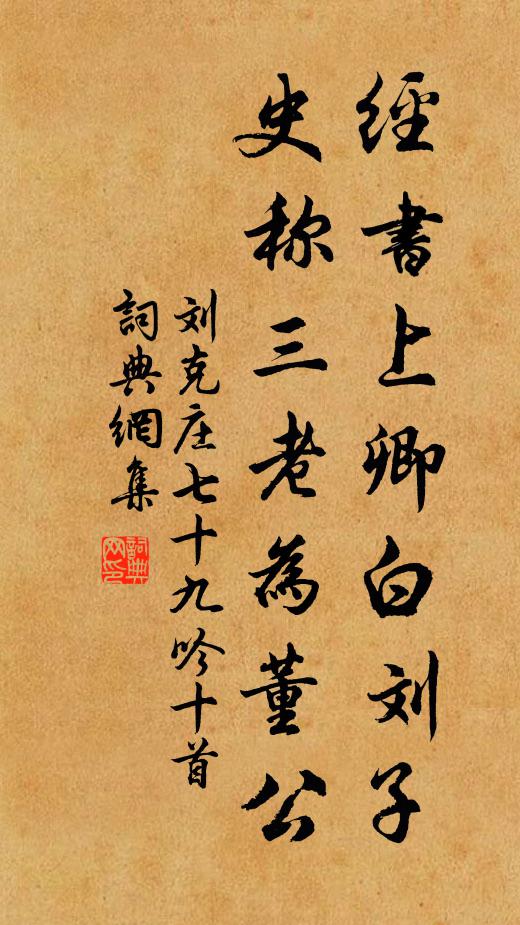 經書上卿白刘子
史称三老為董公
刘克庄七十九吟十首
詞典網集
詞典网印